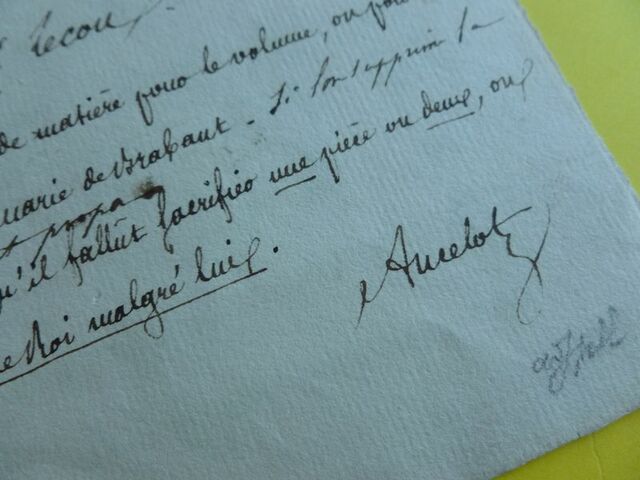 Lecou
de matière pour le volume, ou pour
Marie de Brabant - Si l'on supprim la
qu'il fallût sacrifier une pièce ou deux, ou
le Roi malgré lui.
Ancelot